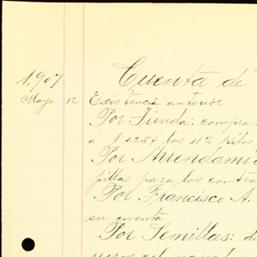 1,907
Cuenta de
Mayo 12 Existencia anterior
Por Tienda: compra
á $1.25 los 11½ kilos
Por Arrendamie
pillas para los contra
Por Francisco A.
su cuenta
Por Semillas: d